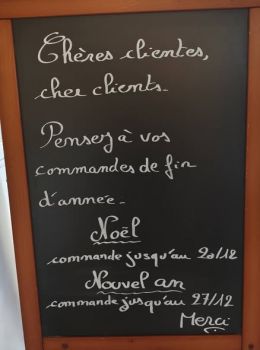 Chères clientes,
cher clients.
Pensez à vos
commandes de fin
d'année.
Noël
commande jusqu'au 20/12
Nouvel an
commande jusqu'au 27/12
Merci